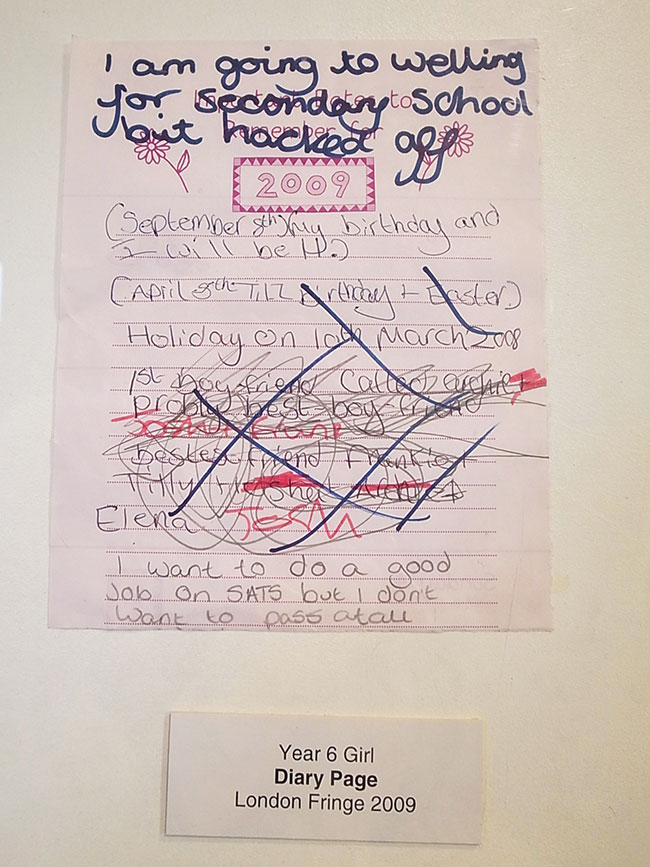 I am going to welling
for secondary school
but hacked off
Important Dates to
Remember for
2009
(September 8th) (My birthday and
I will be 11.)
(April 8th Tillz birthday + Easter)
Holiday on 10th March 2008
1st boyfriend Called archie
best boy friend
bestest friend
Tilly
Elena JESM
I want to do a good
Job on SATS but I don't
want to pass atall
Year 6 Girl
Diary Page
London Fringe 2009